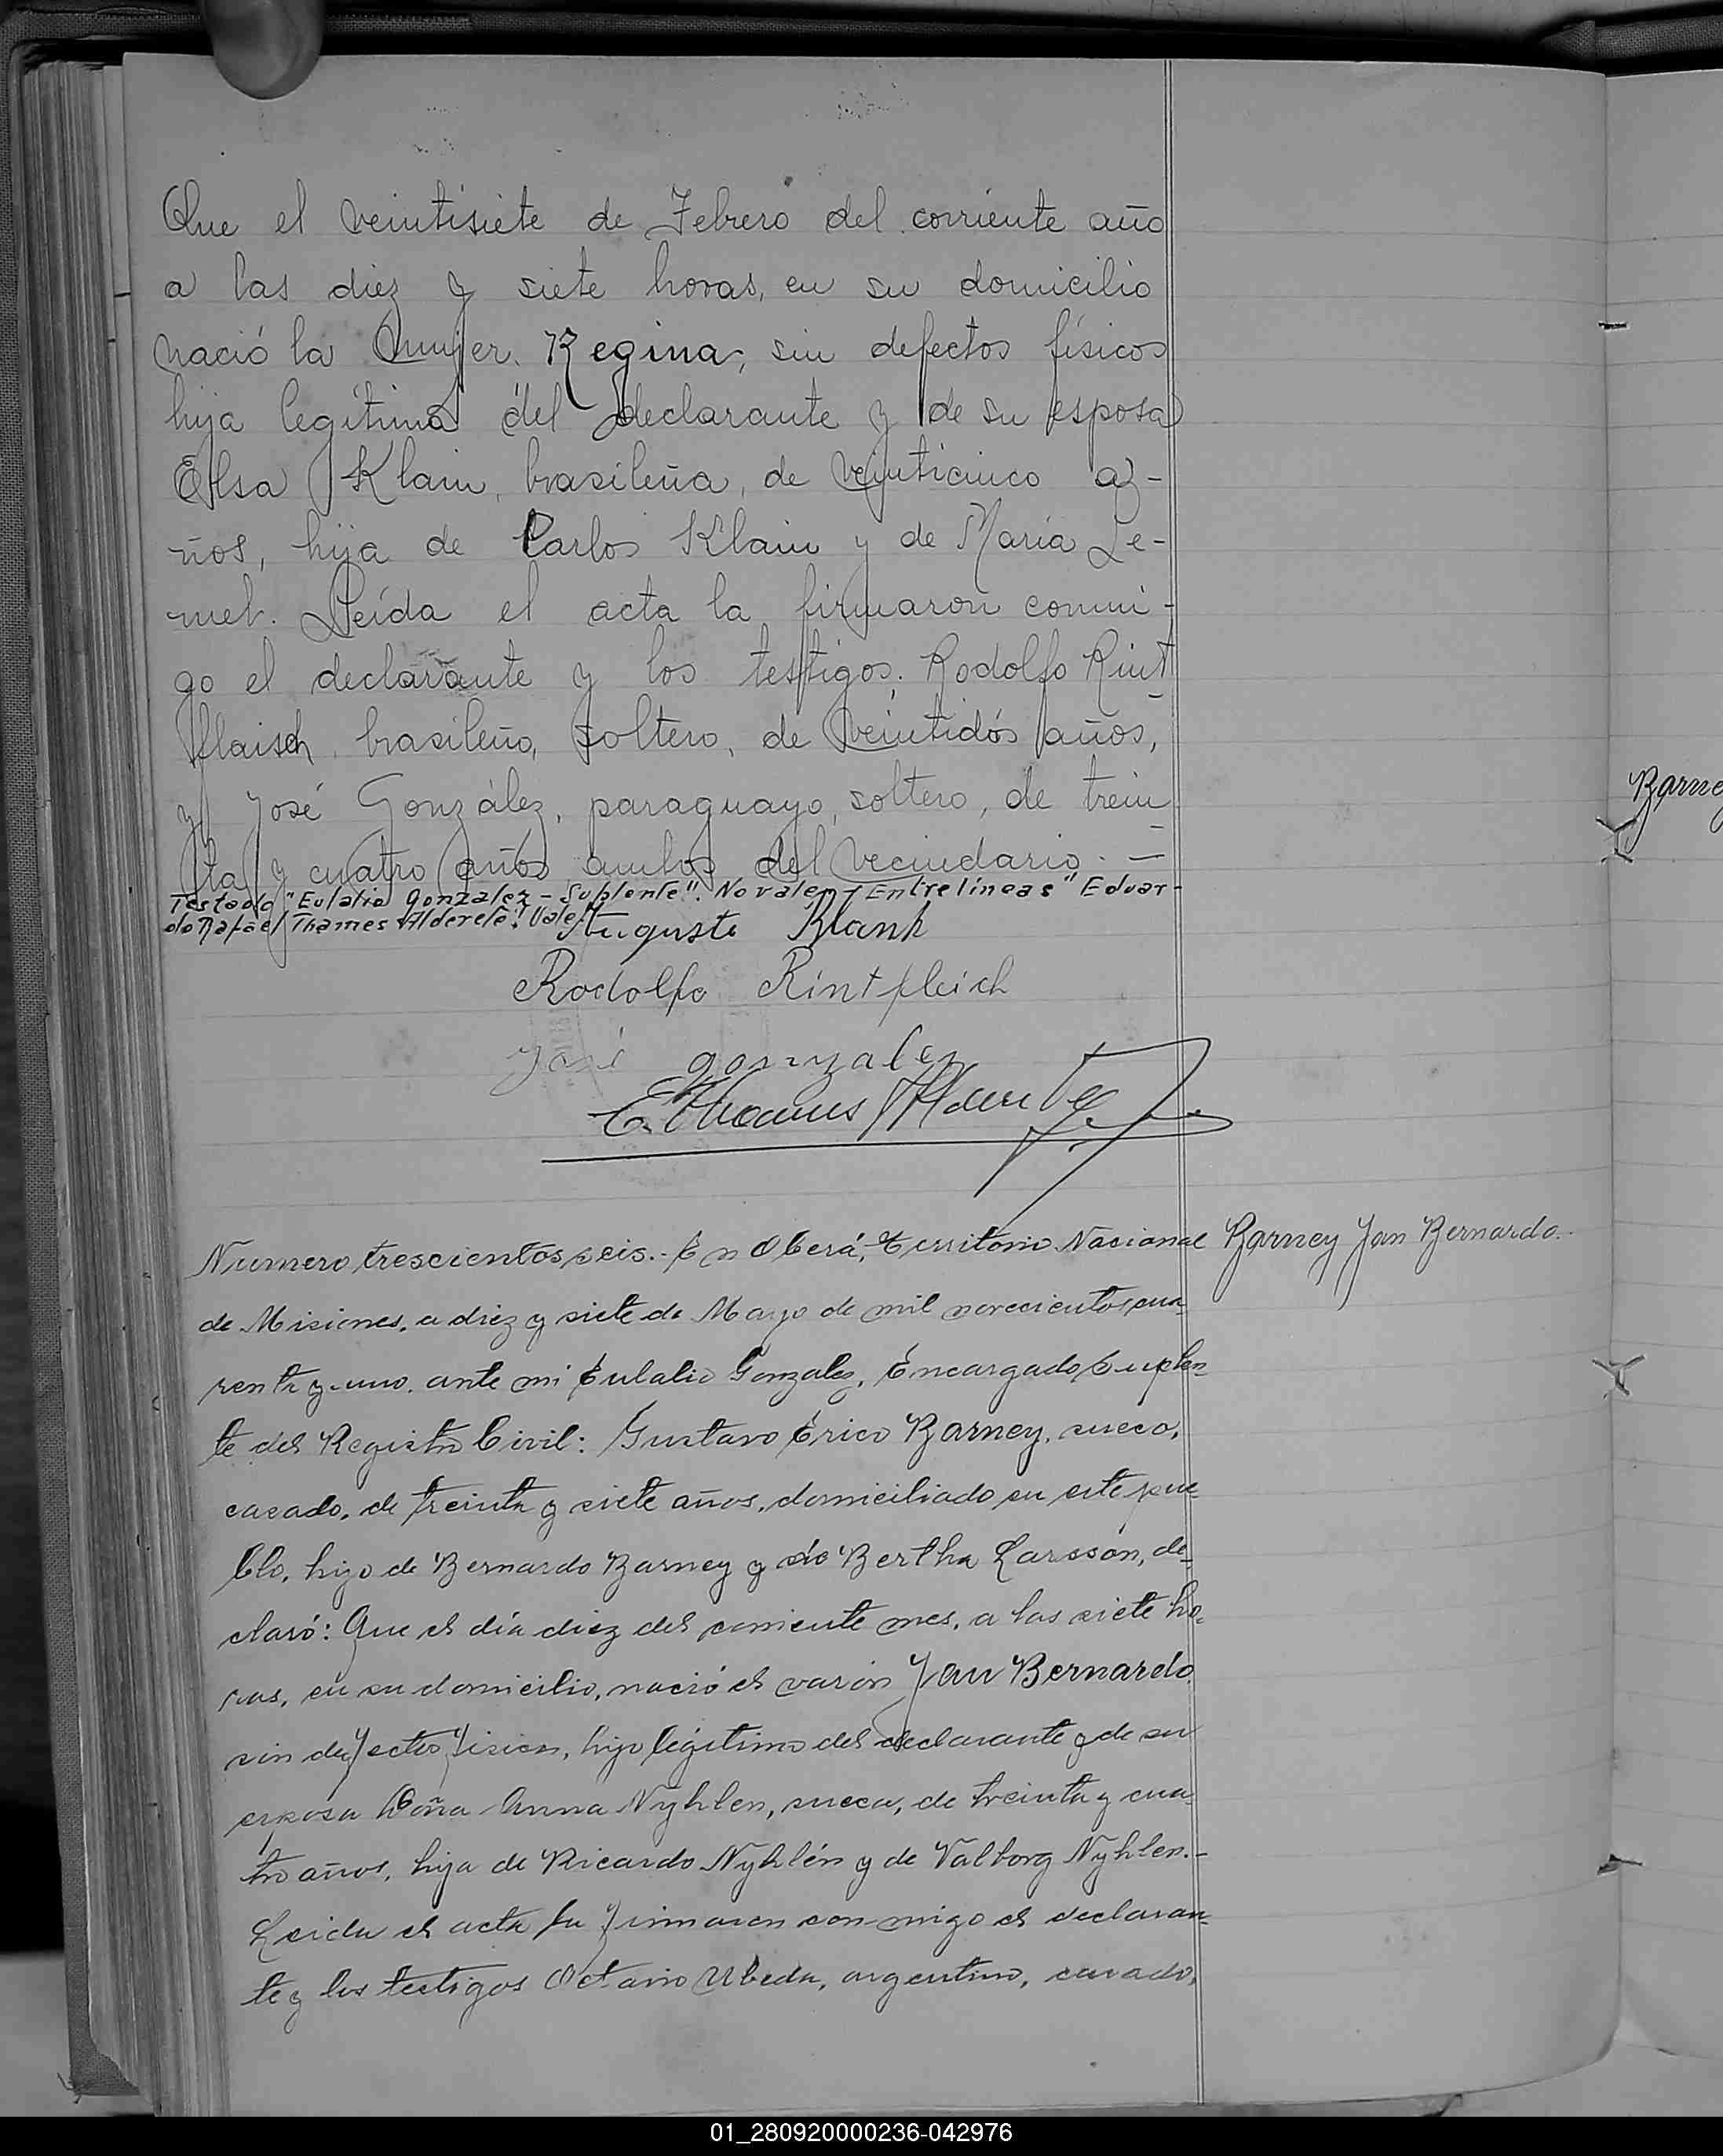 Que el veintisiete de Febrero del corriente año
a las diez y siete horas, en su domicilio
nació la mujer Regina, sin defectos físicos
hija legítima del declarante y de su esposa
Elsa Klain, brasileña, de veinticinco a-
ños, hija de Carlos Klain y de María Le-
mel. Leída el acta la firmaron conmi-
go el declarante y los testigos. Rodolfo Rint
flaisch brasileño, soltero, de veintidós años,
y José González, paraguayo, soltero, de trein
ta y cuatro años ambos del vecindario. —
Testado "Eulalio Gonzalez - Suplente". No valen, Entrelíneas "Eduar-
do Rafael Thames Alderete". Vale.
Augusto Blank
Rodolfo Rintfleich
José gonzalez
E. Thames Alderete
Numero trescientos seis.- En Oberá, Territorio Nacional
Barney Jan Bernardo.-
de Misiones, a diez y siete de Mayo de mil novecientos cua-
renta y uno, ante mi Eulalio Gonzalez, Encargado Suplen-
te del Registro Civil: Gustavo Erico Barney, sueco,
casado, de treinta y siete años, domiciliado en este pue-
blo, hijo de Bernardo Barney y de Bertha Larsson, de-
claró: Que el día diez del corriente mes, a las siete ho-
ras, en su domicilio, nació el varón Jan Bernardo
sin defectos físicos, hijo legítimo del declarante y de su
esposa Doña Anna Nyhlen, sueca, de treinta y cua-
tro años, hija de Ricardo Nyhlén y de Valborg Nyhlen.-
Leida el acta la firmaron con-migo el declaran-
te y los testigos Octavio Ubeda, argentino, casado,
Barne
01_280920000236-042976